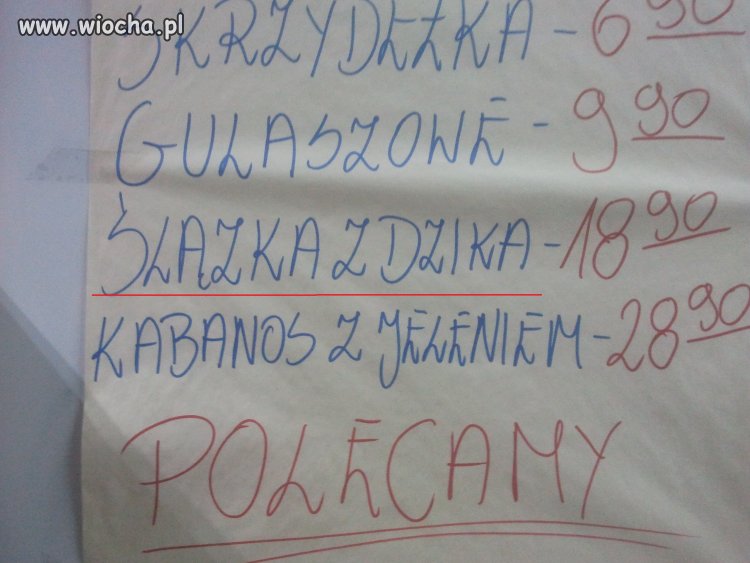 www.wiocha.pl
SKRZYDEŁKA - 6 90
GULASZOWE - 9 90
ŚLĄZKA Z DZIKA - 18 90
KABANOS Z JELENIEM - 28 90
POLECAMY